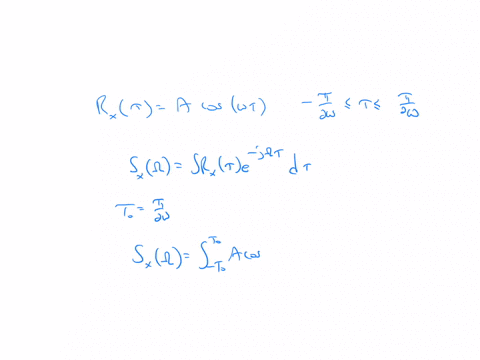 Rₓ(τ) = A cos(ωτ)   -π/2ω ≤ τ ≤ π/2ω
Sₓ(Ω) = ∫Rₓ(τ)e^{-jΩτ} dτ
T₀ = π/2ω
Sₓ(Ω) = ∫_{-T₀}^{T₀} A cos